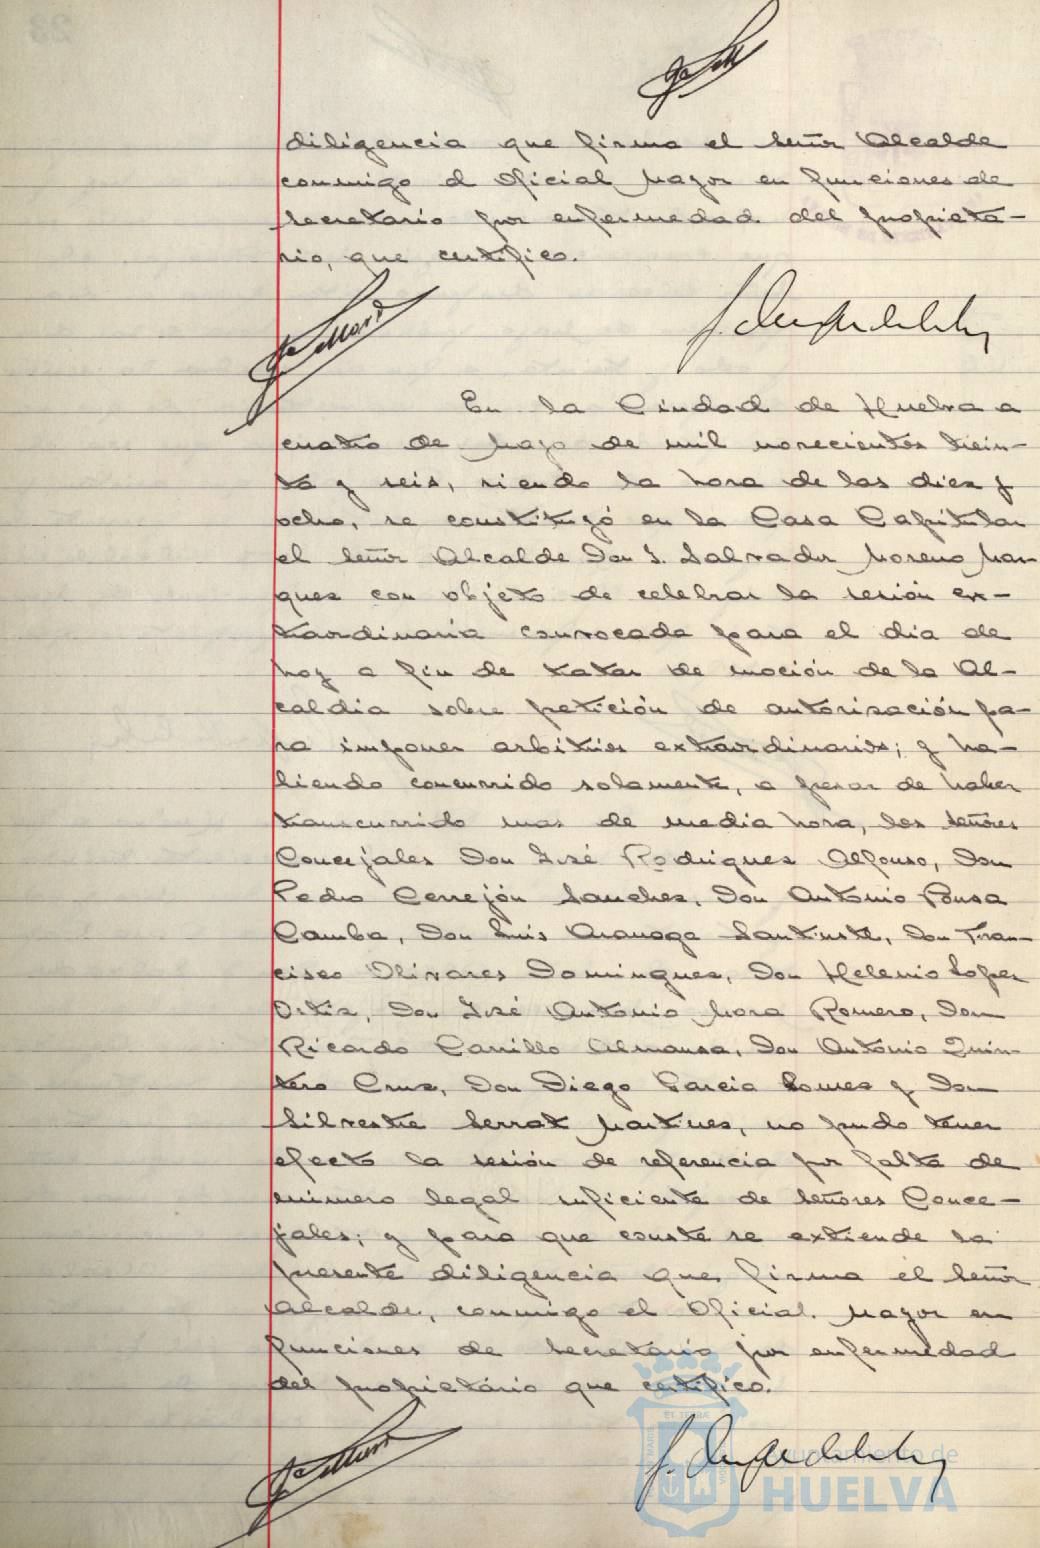 diligencia que firma el Señor Alcalde
conmigo el Oficial Mayor en funciones de
Secretario por enfermedad del propieta-
rio, que certifico.
En la Ciudad de Huelva a
cuatro de Mayo de mil novecientos trein-
ta y seis, siendo la hora de las diez y
ocho, se constituyó en la Casa Capitular
el Señor Alcalde Don J. Salvador Moreno Mar-
quez con objeto de celebrar la sesión ex-
traordinaria convocada para el día de
hoy a fin de tratar de moción de la Al-
caldía sobre petición de autorización pa-
ra imponer arbitrios extraordinarios; y ha-
biendo concurrido solamente, a pesar de haber
transcurrido mas de media hora, los Señores
Concejales Don José Rodriguez Alfonso, Don
Pedro Cerrejón Sanchez, Don Antonio Ponsa
Camba, Don Luis Aranaga Santuste, Don Fran-
cisco Olivares Dominguez, Don Helenio Lopez
Ortiz, Don José Antonio Mora Romero, Don
Ricardo Carrillo Almansa, Don Antonio Quin-
tero Cruz, Don Diego Garcia Gomez y Don
Silvestre Serrat Martinez, no pudo tener
efecto la sesión de referencia por falta de
número legal suficiente de Señores Conce-
jales; y para que conste se extiende la
presente diligencia que firma el Señor
Alcalde, conmigo el Oficial Mayor en
funciones de Secretario por enfermedad
del propietario que certifico.
Ayuntamiento de
HUELVA